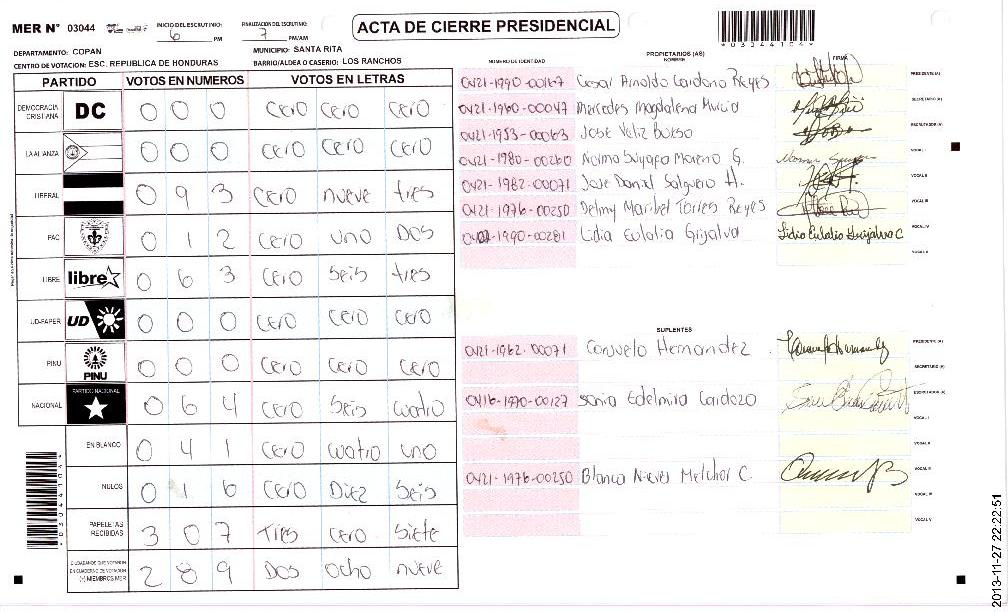 MER N° 03044
INICIO DEL ESCRUTINIO: 6 PM
FINALIZACIÓN DEL ESCRUTINIO: 7 PM/AM
ACTA DE CIERRE PRESIDENCIAL
DEPARTAMENTO: COPAN
MUNICIPIO: SANTA RITA
CENTRO DE VOTACION: ESC. REPUBLICA DE HONDURAS
BARRIO/ALDEA O CASERIO: LOS RANCHOS
PARTIDO VOTOS EN NUMEROS VOTOS EN LETRAS
DEMOCRACIA CRISTIANA DC 0 0 0 cero cero cero
LA ALIANZA 0 0 0 cero cero cero
LIBERAL 0 9 3 cero nueve tres
PAC 0 1 2 cero uno Dos
LIBRE libre 0 6 3 cero seis tres
UD-FAPER UD 0 0 0 cero cero cero
PINU PINU 0 0 0 cero cero cero
NACIONAL PARTIDO NACIONAL 0 6 4 cero seis cuatro
EN BLANCO 0 4 1 cero cuatro uno
NULOS 0 1 6 cero Diez seis
PAPELETAS RECIBIDAS 3 0 7 Tres cero siete
CIUDADANOS QUE VOTARON EN CUADERNO DE VOTACION (+) MIEMBROS MER 2 8 9 Dos ocho nueve
NUMERO DE IDENTIDAD PROPIETARIOS (AS) FIRMA
0421-1990-00167 Cesar Arnoldo Cardona Reyes PRESIDENTE (A)
0421-1960-00047 Mercedes Magdalena Murcia SECRETARIO (A)
0421-1953-00063 José Veliz ESCRUTADOR (A)
0421-1980-00260 Norma Suyapa Moreno G. VOCAL I
0421-1982-00071 Jose Daniel Salguero H. VOCAL II
0421-1976-00250 Delmy Maribel Torres Reyes VOCAL III
-1990-00281 Lidia Eulalia Grijalva Lidia Eulalia Grijalva C VOCAL IV
VOCAL V
SUPLENTES
0421-1962-00071 Consuelo Hernandez PRESIDENTE (A)
SECRETARIO (A)
0416-1970-00127 Sonia Edelmira Cardozo ESCRUTADOR (A)
VOCAL I
VOCAL II
0421-1976-00250 Blanca Nieves Melchor C. VOCAL III
VOCAL IV
VOCAL V
*03044104*
*03044104*
2013-11-27 22:22:51